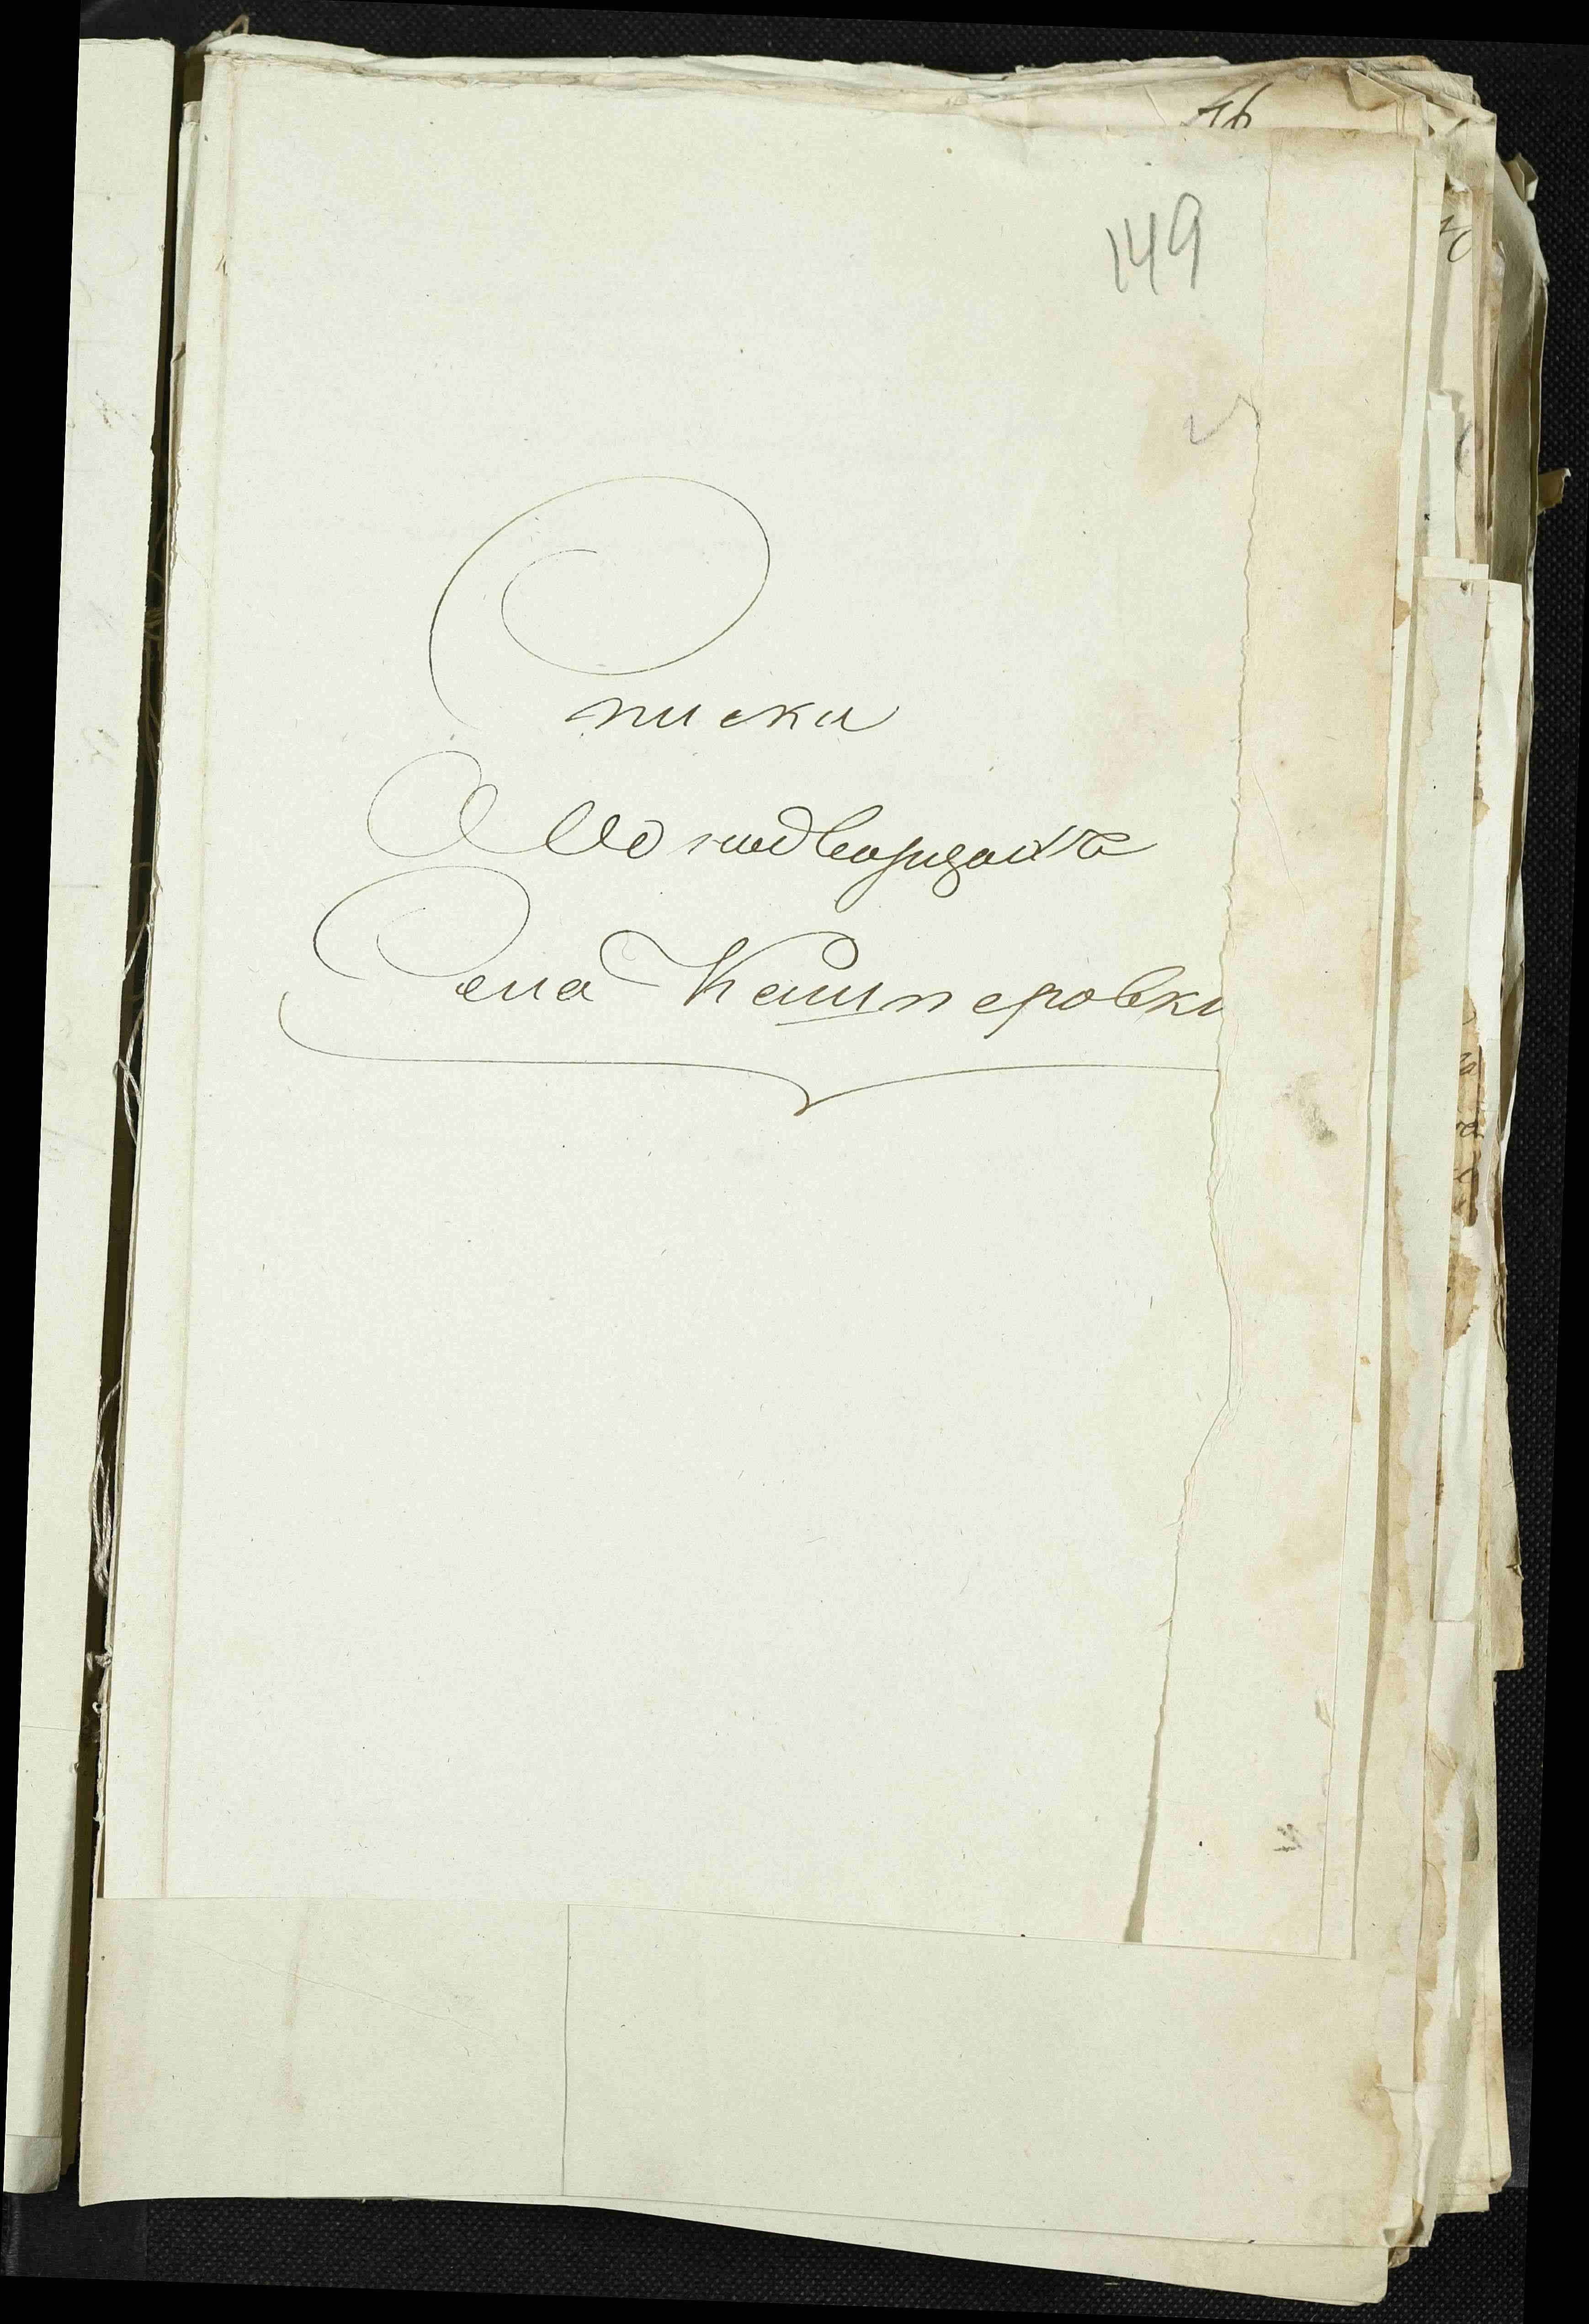 149
Списки
Однодворцамъ
Села Кашперовки